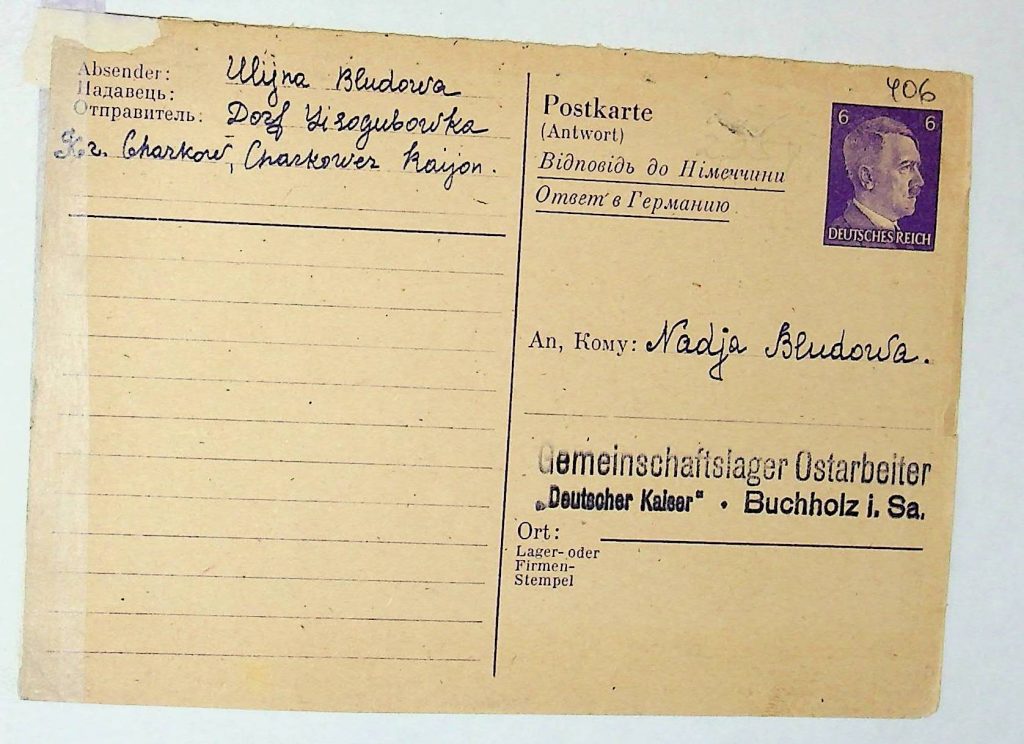 406
Absender: Ulijna Bludowa
Надавець:
Отправитель: Dorf Lisogubowka
Kr. Charkow, Charkower Raijon.
Postkarte
(Antwort)
Відповідь до Німеччини
Ответ в Германию
6 6
DEUTSCHES REICH
An, Кому: Nadja Bludowa.
Gemeinschaftslager Ostarbeiter
„Deutscher Kaiser“ • Buchholz i. Sa.
Ort:
Lager- oder
Firmen-
Stempel